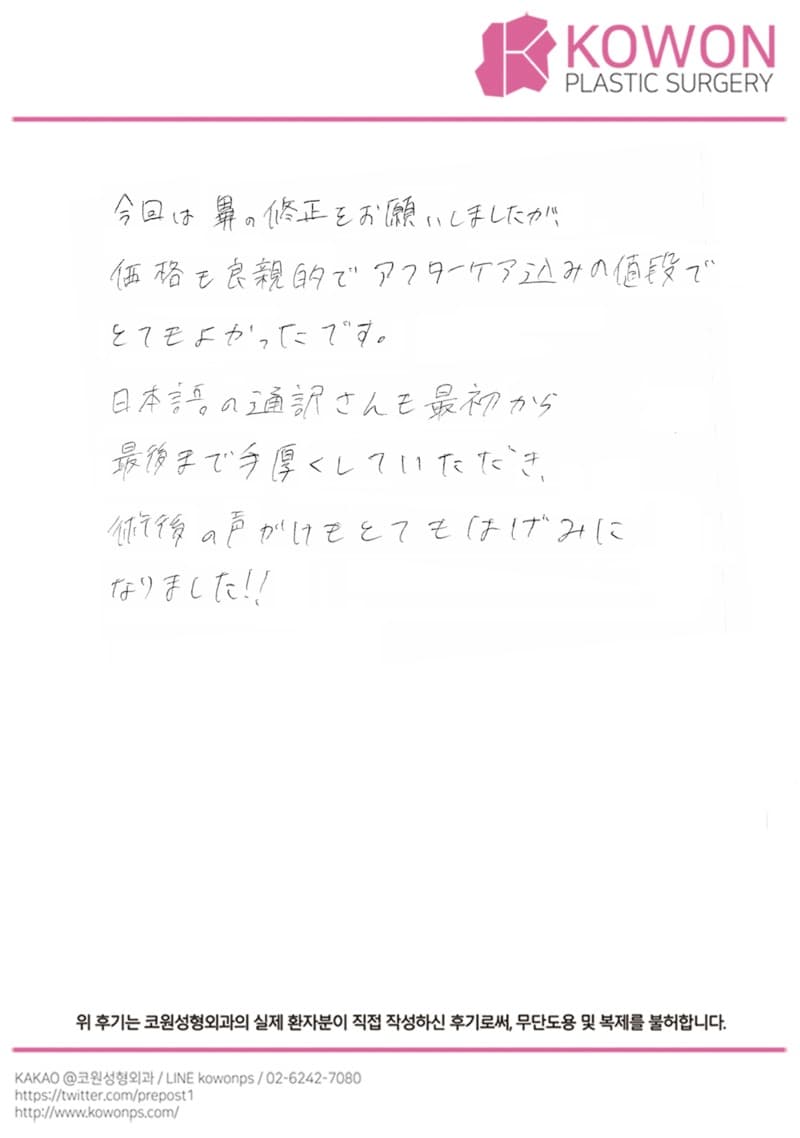 KOWON
PLASTIC SURGERY
今回は鼻の修正をお願いしましたが、
価格も良親的でアフターケア込みの値段で
とてもよかったです。
日本語の通訳さんも最初から
最後まで手厚くしていただき、
術後の声がけもとてもはげみに
なりました!!
위 후기는 코원성형외과의 실제 환자분이 직접 작성하신 후기로써, 무단도용 및 복제를 불허합니다.
KAKAO @코원성형외과 / LINE kowonps / 02-6242-7080
https://twitter.com/prepost1
http://www.kowonps.com/